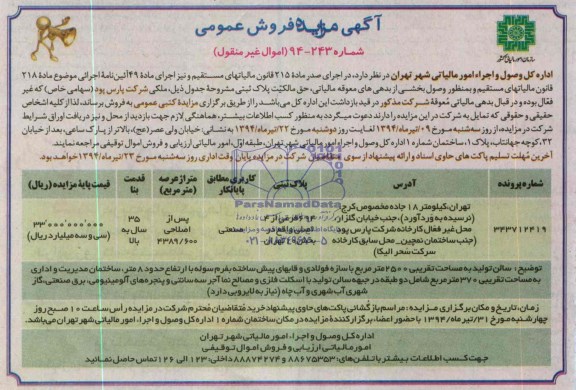 آگهی مزایده فروش عمومی
شماره ۲۴۳-۹۴ (اموال غیر منقول)
سازمان امور مالیاتی کشور
اداره کل وصول و اجراء امور مالیاتی شهر تهران در نظر دارد، در اجرای صدر مادۀ ۲۱۵ قانون مالیاتهای مستقیم و نیز اجرای مادۀ ۴۹ آئین‌نامۀ اجرائی موضوع مادۀ ۲۱۸
قانون مالیاتهای مستقیم و بمنظور وصول بخشی از بدهی های معوقه مالیاتی، حق مالکیّت پلاک ثبتی مشروحۀ جدول ذیل، ملکی شرکت پارس پود (سهامی خاص) که غیر
فعّال بوده و در قبال بدهی مالیاتی مُعوقۀ شرکت مذکور در قید بازداشت این اداره کل می‌باشد را از طریق برگزاری مزایدۀ کتبی عمومی به فروش برساند، لذا از کلیه اشخاص
حقیقی و حقوقی که تمایل به شرکت در این مزایده را دارند دعوت میگردد به منظور کسب اطلاعات بیشتر، هماهنگی لازم جهت بازدید از محل و نیز دریافت اوراق شرایط
شرکت در مزایده، از روز سه‌شنبه مورخ ۰۹/تیرماه/۱۳۹۴ لغایت روز دوشنبه مورخ ۲۲/تیرماه/۱۳۹۴ به نشانی: خیابان ولی عصر (عج)، بالاتر از پارک ساعی، بعد از خیابان
۳۲، کوچه جهانتاب، پلاک ۱، ساختمان شماره ۱ اداره کل وصول و اجراء امور مالیاتی شهر تهران، طبقه اول، امور مالیاتی ارزیابی و فروش اموال توقیفی مراجعه نمایند.
آخرین مُهلت تسلیم پاکت های حاوی اسناد و ارائه پیشنهاد از سوی متقاضیان شرکت در مزایده پایان وقت اداری روز سه‌شنبه مورخ ۲۳/تیرماه/۱۳۹۴ خواهد بود.
شماره پرونده
آدرس
پلاک ثبتی
کاربری مطابق پایانکار
متراژ عرصه (متر مربع)
قدمت بنا
قیمت پایۀ مزایده (ریال)
۳۴۳۷۱۲۴۱۹
تهران، کیلومتر ۱۸ جاده مخصوص کرج
(نرسیده به وردآورد)، جنب خیابان گلزار،
محل غیر فعال کارخانه شرکت پارس پود
(جنب ساختمان نمچین_محل سابق کارخانه
شرکت شحر الیکا)
صنعتی
پس از اصلاحی ۴۳۸۹/۶۰۰
۳۵ سال به بالا
۳۳/۰۰۰/۰۰۰/۰۰۰
(سی و سه میلیارد ریال)
ParsNamadData
توضیح: سالن تولید به مساحت تقریبی ۲۵۰۰ متر مربع با سازه فولادی و قابهای پیش ساخته بفرم سوله با ارتفاع حدود ۸ متر، ساختمان مدیریت و اداری
به مساحت تقریبی ۳۷۰ متر مربع شامل دو طبقه در جبهه سالن تولید با اسکلت فلزی و مصالح نما آجر سه سانتی و پنجره‌های آلومینیومی، برق صنعتی، گاز
شهری، آب شهری و آب چاه (نیاز به لایروبی دارد)
زمان، تاریخ و مکان برگزاری مزایده: مراسم بازگشائی پاکت‌های حاوی پیشنهاد خرید متقاضیان محترم شرکت در مزایده رأس ساعت ۱۰ صبح روز
چهارشنبه مورخ ۳۱/تیرماه/۱۳۹۴ با حضور اعضاء برگزار کنندۀ مزایده در مکان ساختمان شماره ۱ اداره کل وصول و اجراء امور مالیاتی شهر تهران می‌باشد.
اداره کل وصول و اجراء امور مالیاتی شهر تهران
امور مالیاتی ارزیابی و فروش اموال توقیفی
جهت کسب اطلاعات بیشتر با تلفن‌های: ۸۸۶۷۵۳۵۳ و ۸۸۸۷۴۲۷۴ داخلی: ۱۲۳ الی ۱۲۶ تماس حاصل نمائید